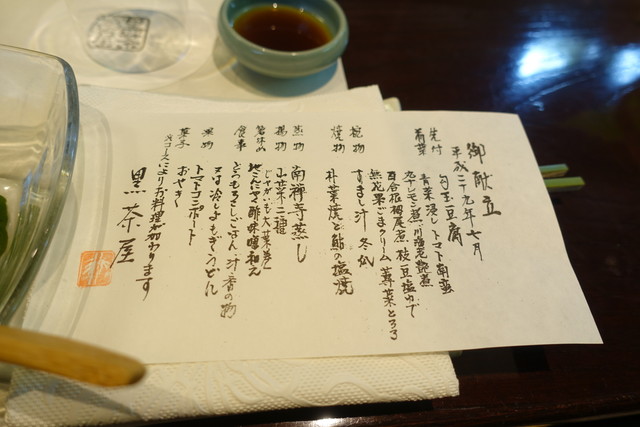 御献立
平成二十九年七月
先付 勾玉豆腐
前菜 青菜浸し トマト南蛮
丸十レモン煮 川海老艶煮
百合根梅尾煮 枝豆塩ゆで
無花果ごまクリーム 蓴菜とろろ
椀物 すまし汁 冬瓜
焼物 朴葉焼と鮎の塩焼
蒸物 南禅寺蒸し
揚物 山菜二種
じゃがいも大葉巻
箸休め 地こんにゃく酢味噌和え
食事 とうもろこしごはん 汁 香の物
又は冷しよもぎうどん
果物 トマトコンポート
菓子 おやき
コースによりお料理が加わります
黒茶屋